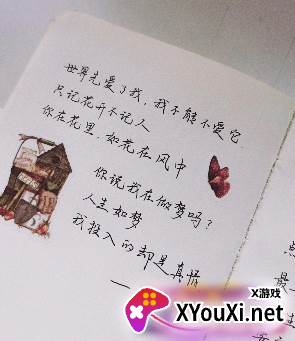 世界先爱了我，我不能不爱它
只记花开不记人
你在花里，如花在风中
你说我在做梦吗？
人生如梦
我投入的却是真情
一
点
最
生
X游戏
XYouXi.net